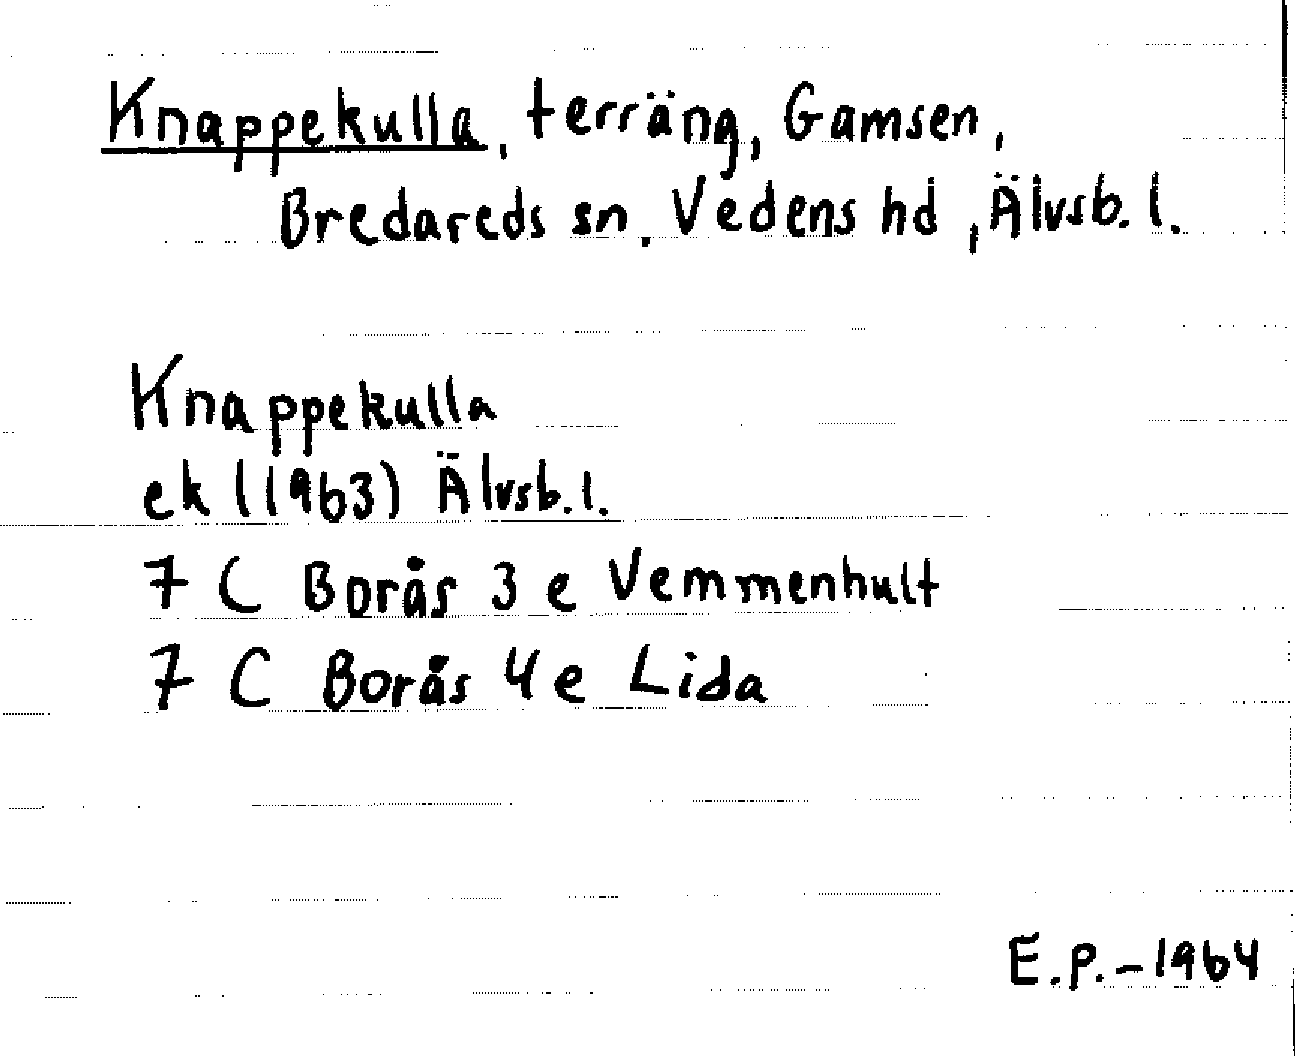 Knappekulla, terräng, Gamsen,
Bredareds sn. Vedens hd, Älvsb. l.
Knappekulla
ek (1963) Älvsb. l.
7 C Borås 3 e Vemmenhult
7 C Borås 4 e Lida
E.P. - 1964